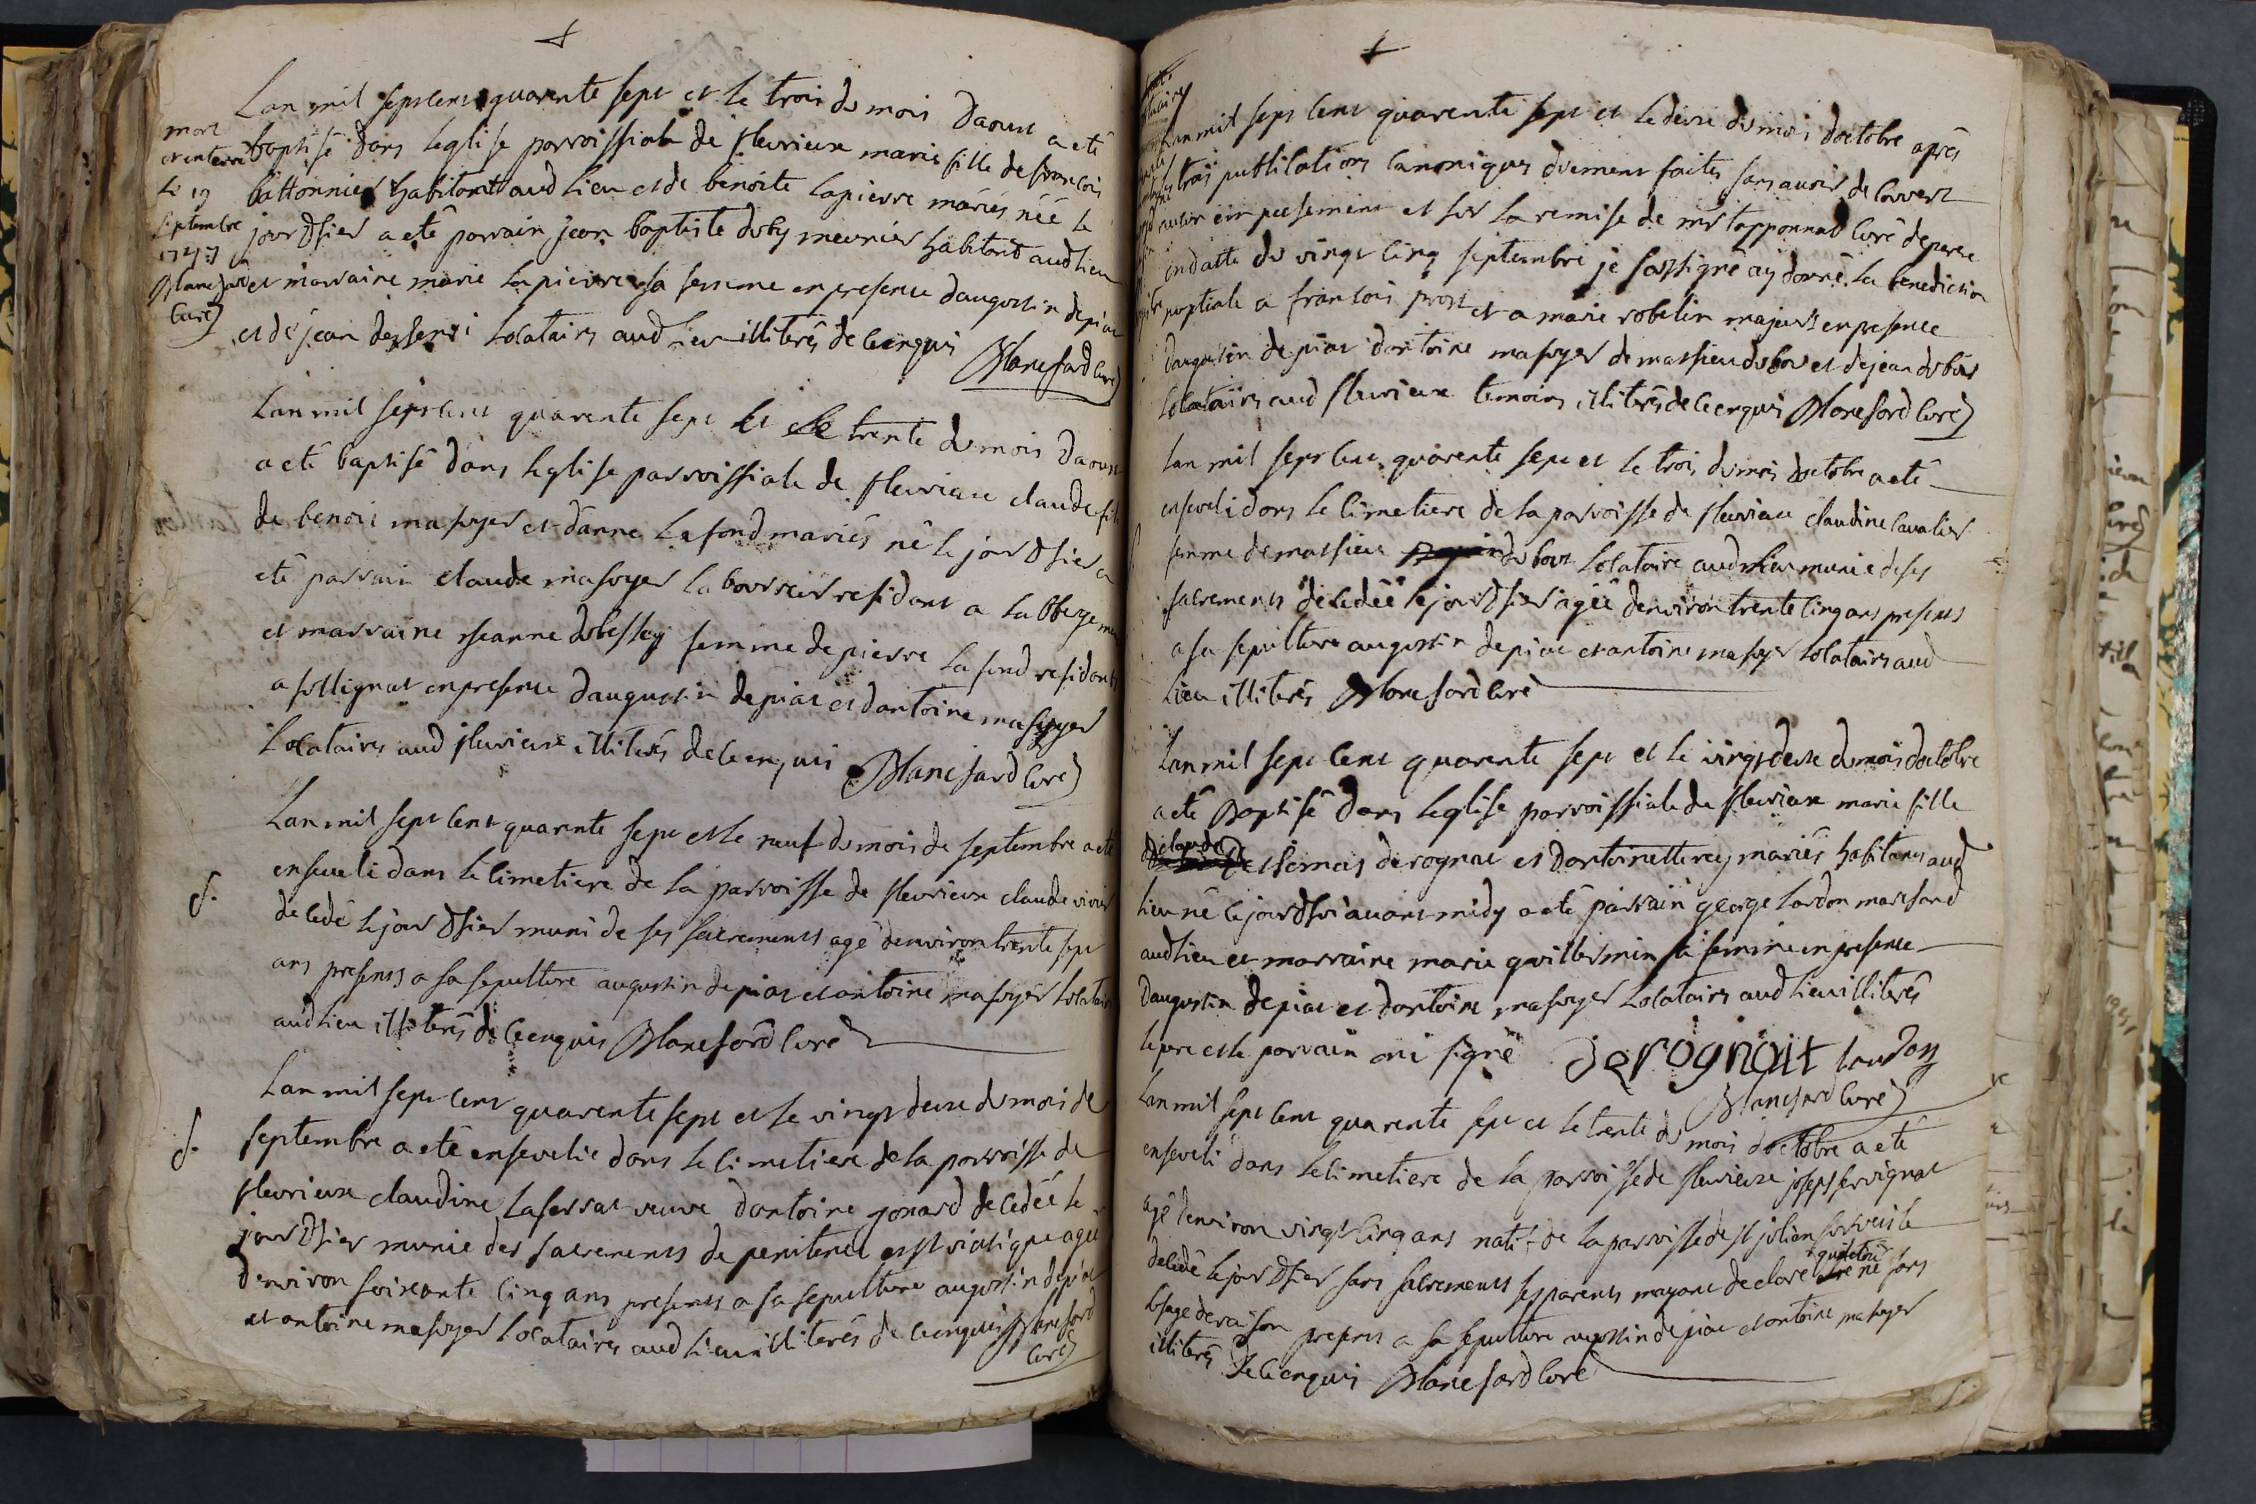 Lan mil sept cent quarente sept et le trois du mois Daoust a eté
baptisé dans leglise parroissiale de fleurieux marie fille de francois
battonnier habitant aud lieu et de benoite lapierre mariés néé le
jour Dhier a eté parrain jean baptiste duby meunier habitant aud lieu
et marraine marie lapierre sa femme en presence daugustin depiat
et de jean locataires aud lieu illiterés de ce enquis Blanchard curé
mort
et enterré
le 19
septembre
1747
Blanchard
curé
Lan mil sept cent quarente sept et le trente du mois Daoust
a eté baptisé dans leglise parroissiale de fleurieux claude fils
de benoit masuyer et danne lafond mariés né le jour Dhier a
eté parrain claude masuyer laboureur residant a labbergement
et marraine jeanne dubessey femme de pierre lafond residants
a sullignat en presence daugustin depiat et dantoine masuyer
locataires aud fleurieux illiterés de ce enquis Blanchard curé
Lan mil sept cent quarente sept et le neuf du mois de septembre a eté
enseveli dans le cimetiere de la parroisse de fleurieux claude vivier
decedé le jour Dhier muni de ses sacrements agé denviron trente sept
ans presents a sa sepulture augustin depiat et antoine masuyer locataires
aud lieu illiterés de ce enquis Blanchard curé
S.
Lan mil sept cent quarente sept et le vingt deux du mois de
septembre a eté ensevelie dans le cimetiere de la parroisse de
fleurieux claudine laferrat veuve dantoine gonard decedéé le
jour Dhier munie des sacrements de penitence et st viatique agéé
denviron soixante cinq ans presents a sa sepulture augustin depiat
et antoine masuyer locataires aud lieu illiterés de ce enquis Blanchard
curé
S.
Lan mil sept cent quarente sept et le deux du mois doctobre aprés
trois publications canoniques duement faites sans avoir decouvert
aucun empechement et sur la remise de mr tapponnat curé de
en datte du vingt cinq septembre je soussigné ay donné la benediction
nuptiale a francois prost et a marie robelin majeurs en presence
daugustin depiat dantoine masuyer de mathieu dubois et de jean dubois
locataires aud fleurieux temoins illiterés de ce enquis Blanchard curé
Lan mil sept cent quarente sept et le trois du mois doctobre a eté
enseveli dans le cimetiere de la parroisse de fleurieux claudine cavalier
femme de mathieu dubois locataire aud lieu munie de ses
sacrements decedéé le jour Dhier agéé denviron trente cinq ans presents
a sa sepulture augustin depiat et antoine masuyer locataires aud
lieu illiterés Blanchard curé
Lan mil sept cent quarente sept et le vingt deux du mois doctobre
a eté Baptisé dans leglise parroissiale de fleurieux marie fille
declaude thomas derognat et dantoinette rey mariés habitants aud
lieu né cejourdhui avant midy a eté parrain george lardon marchand
aud lieu et marraine marie guillermin sa femme en presence
Daugustin depiat et dantoine masuyer locataires aud lieu illiterés
le pere et le parrain ont signé derognait lardon
Blanchard curé
Lan mil sept cent quarente sept et le trente du mois doctobre a eté
enseveli dans le cimetiere de la parroisse de fleurieux joseph servignat
agé denviron vingt cinq ans natif de la parroisse de st julien sur veile
decedé le jour Dhier sans sacrements ses parents mayant declaré quil etoit né sans
lusage de raison presents a sa sepulture augustin depiat et antoine masuyer
illiterés de ce enquis Blanchard curé